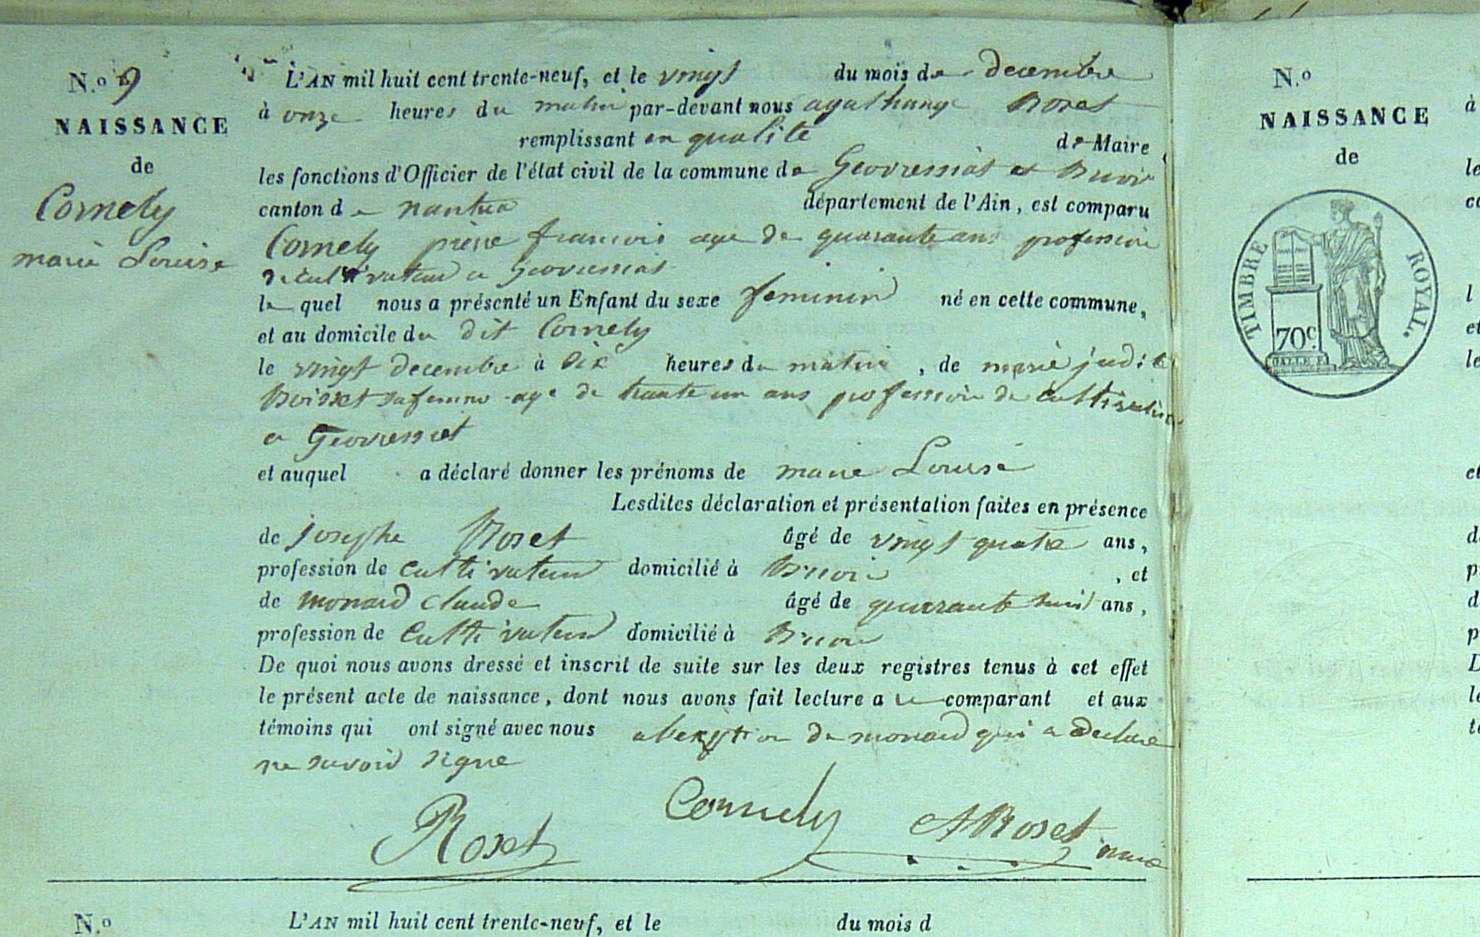 N.º 9
NAISSANCE
de
Cornely
marie Louise
L'AN mil huit cent trente-neuf, et le vingt du mois de decembre
à onze heures du matin par-devant nous agathange Roset
remplissant en qualite de Maire
les fonctions d'Officier de l'état civil de la commune de Geovressiat et
canton de nantua département de l'Ain, est comparu
Cornely pierre francois age de quarante ans profession
de cultivateur a Geovressiat
le quel nous a présenté un Enfant du sexe feminin né en cette commune,
et au domicile du dit Cornely
le vingt decembre à dix heures du matin, de marie judite
sa femme age de trante un ans profession de cultivatrice
a Geovressiat
et auquel a déclaré donner les prénoms de marie Louise
Lesdites déclaration et présentation faites en présence
de josephe Roset âgé de vingt quatre ans,
profession de cultivateur domicilié à , et
de monard claude âgé de quarante huit ans,
profession de cultivateur domicilié à
De quoi nous avons dressé et inscrit de suite sur les deux registres tenus à cet effet
le présent acte de naissance, dont nous avons fait lecture a le comparant et aux
témoins qui ont signé avec nous de monard qui a declare
ne savoir signe
Roset Cornely ARoset maire
N.º
L'AN mil huit cent trente-neuf, et le du mois d
N.º
NAISSANCE
de
TIMBRE ROYAL.
70C.
à
le
l
et
le
et
de
de
D
le